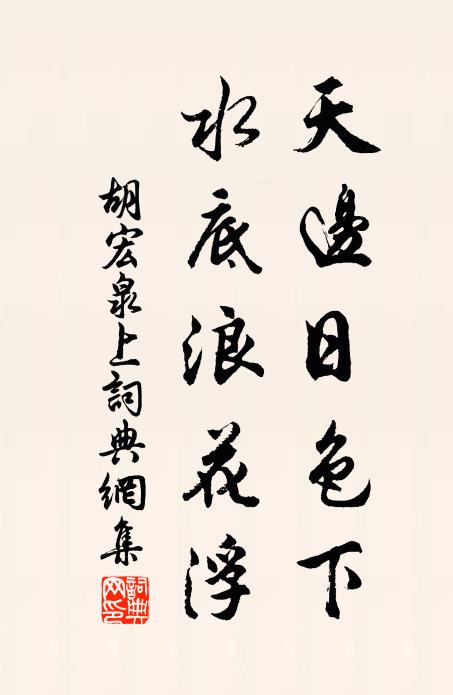 天邊日色下
水底浪花浮
胡宏泉上詞典網集
詞典網印